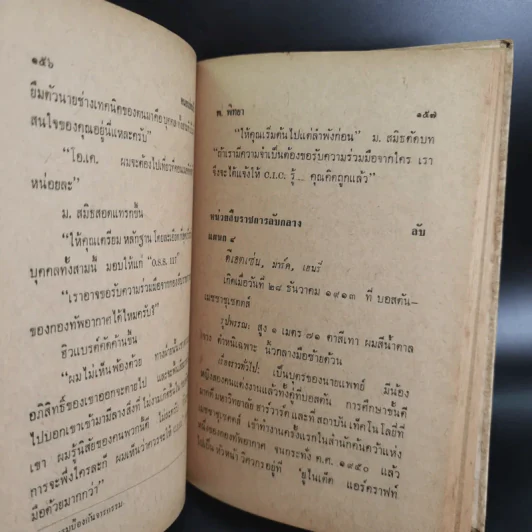 ๑๕๖
ยืมตัวนายช่างเทคนิคของคนมาคือบุคคล
สนใจของคุณอยู่นี่แหละครับ"
"โอ.เค. ผมจะต้องไปเที่ยว
หน่อยละ"
ม. สมิธสอดแทรกขึ้น
"ให้คุณเตรียมหลักฐานโดยละเอียด
บุคคลทั้งสามนี้ มอบให้แก่ "O.S.S. 117"
"เราอาจขอรับความร่วมมือจาก
ของกองทัพอากาศได้ไหมครับ?
ฮิวแบรด์คัดค้านขึ้น
"ผมไม่เห็นพ้องด้วย ทางฝ่าย
อภิสิทธิ์ของเขาออกจะตายไป และ
ไปบอกเขาเข้ามามีลางสิ่งที่ไม่งาม
เขา ผมรู้นิสัยของคนพวกนี้ดี
การจะพึ่งใครละก็ ผมเห็นว่าควรจะ
มือด้วยมากกว่า"
พ. พิทยา ๑๕๗
"ให้คุณเริ่มต้นไปแต่ลำพังก่อน" ม. สมิธตัดบท
"ถ้าเรามีความจำเป็นต้องขอรับความร่วมมือจากใคร เรา
จึงจะได้แจ้งให้ C.I.C. รู้... คุณคิดถูกแล้ว"
หน่วยสืบราชการลับกลาง ลับ
แผนก ๔
ดีเอตเช่น, มาร์ค, เฮนรี่
เกิดเมื่อวันที่ ๒๘ ธันวาคม ๑๙๑๓ ที่ บอสตัน-
เมซซาชูเซตส์
รูปพรรณ: สูง ๑ เมตร ๗๑ ตาสีเทา ผมสีน้ำตาล
ตำหนิเฉพาะ นิ้วกลางมือซ้ายด้วน
เรื่องราวทั่วไป: เป็นบุตรของนายแพทย์ มีน้อง
หญิงสองคนแต่งงานแล้วทั้งคู่ที่บอสตัน การศึกษาชั้นดี
จากที่ มหาวิทยาลัย ฮาร์วาร์ด และที่ สถาบัน เทคโนโลยีที่
เมซซาชูเซตส์ เข้าทำงานครั้งแรกในสำนักค้นคว้าแห่ง
หนึ่งของกองทัพอากาศ จนกระทั่ง ค.ศ. ๑๙๕๐ แล้ว
ไปเป็น หัวหน้า วิศวกรอยู่ที่ "ยูไนเต็ด แอร์คราฟท์